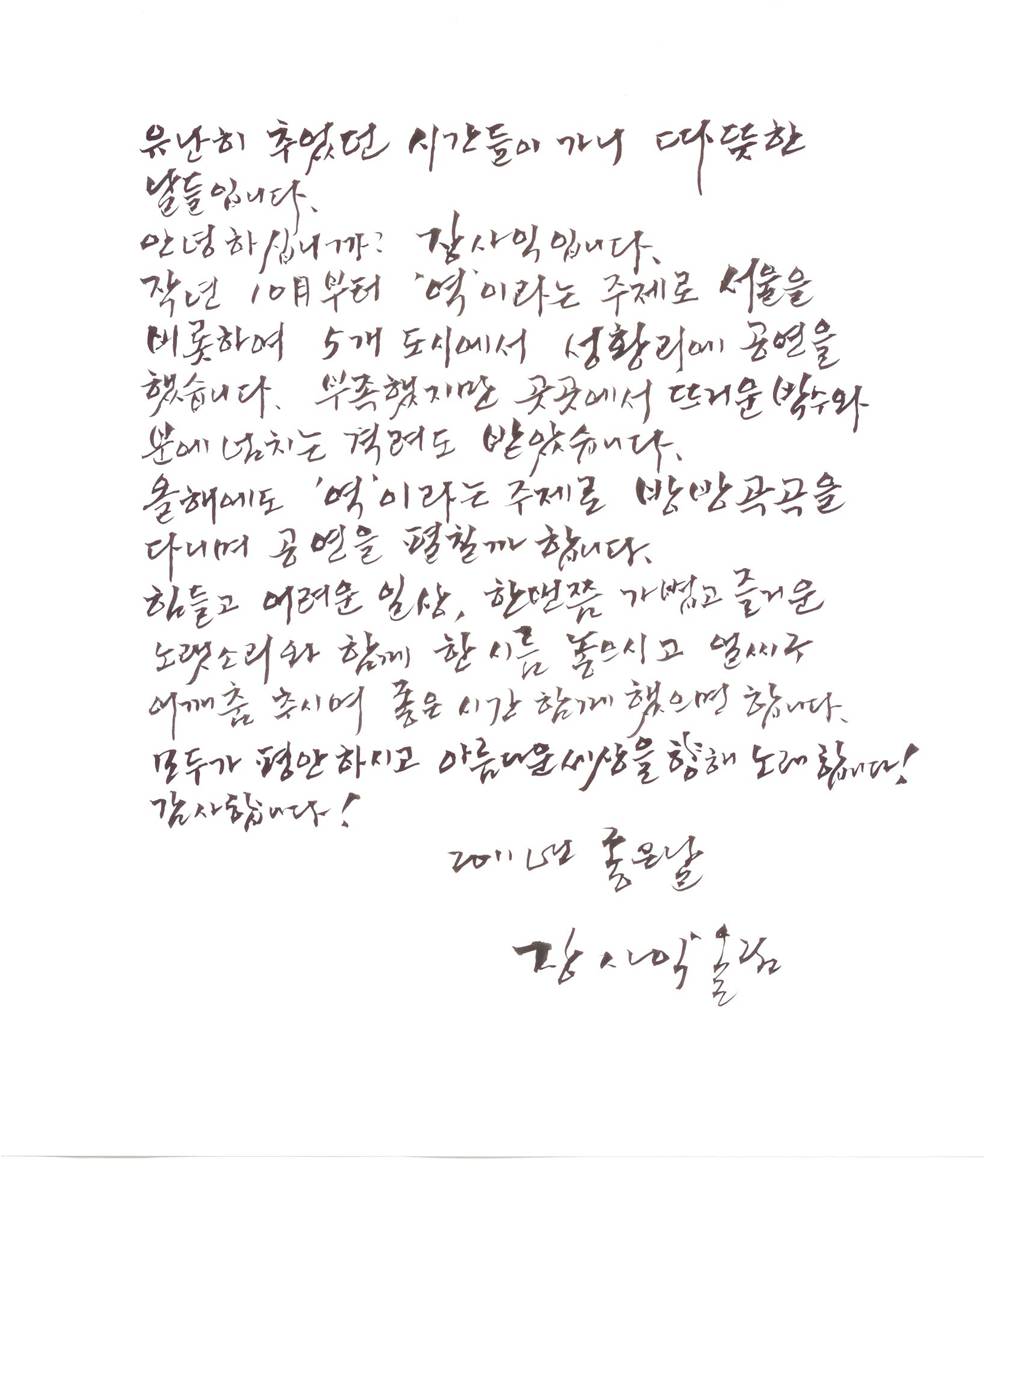 유난히 추웠던 시간들이 가니 따뜻한
날들입니다.
안녕하십니까? 장사익입니다.
작년 10月부터 '역'이라는 주제로 서울을
비롯하여 5개 도시에서 성황리에 공연을
했습니다. 부족했지만 곳곳에서 뜨거운 박수와
분에 넘치는 격려도 받았습니다.
올해에도 '역'이라는 주제로 방방곡곡을
다니며 공연을 펼칠까 합니다.
힘들고 어려운 일상, 한번쯤 가볍고 즐거운
노랫소리와 함께 한 시름 놓으시고 얼씨구
어깨춤 추시며 좋은 시간 함께 했으면 합니다.
모두가 평안하시고 아름다운 세상을 향해 노래합니다!
감사합니다!
2011년 좋은날
장사익 올림